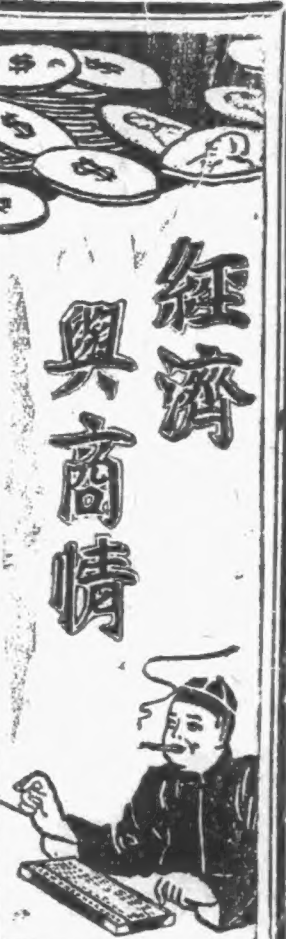 經濟
與商情